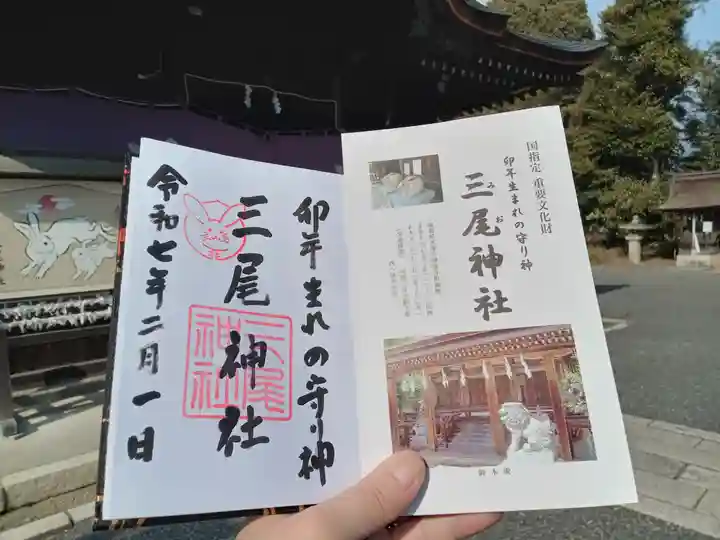 卯年生まれの守り神
三尾神社
令和七年二月一日
三尾神社
国指定 重要文化財
卯年生まれの守り神
みお
三尾神社
御本殿